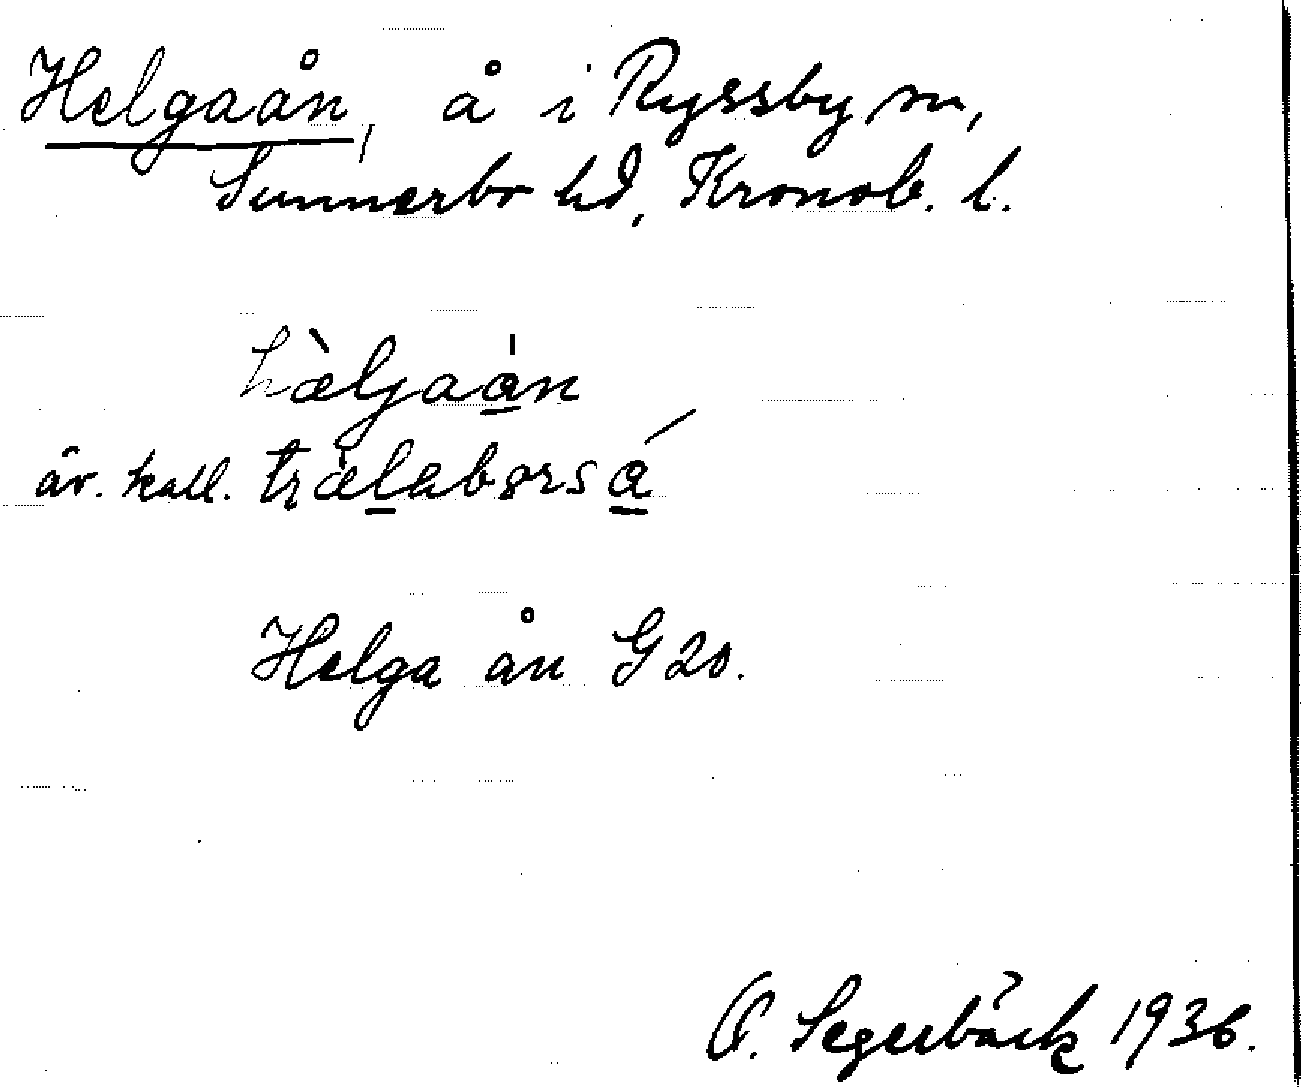 Helgaån, å i Ryssby sn,
Sunnerbo hd, Kronob. l.
hæ̀ljaå̲n
äv. kall. træ̀l̲abørså̲
Helga ån G 20.
O. Segerbäck 1936.